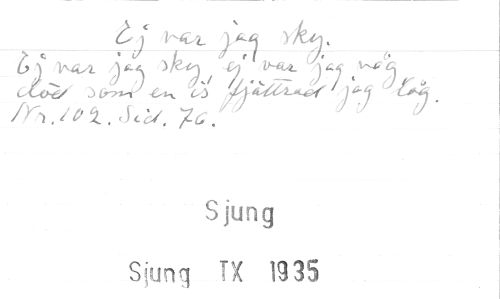 Ej var jag sky.
Ej var jag sky, ej var jag våg
död som en is fjättrad jag låg.
Nr. 102. Sid. 76.
Sjung
Sjung TX 1935